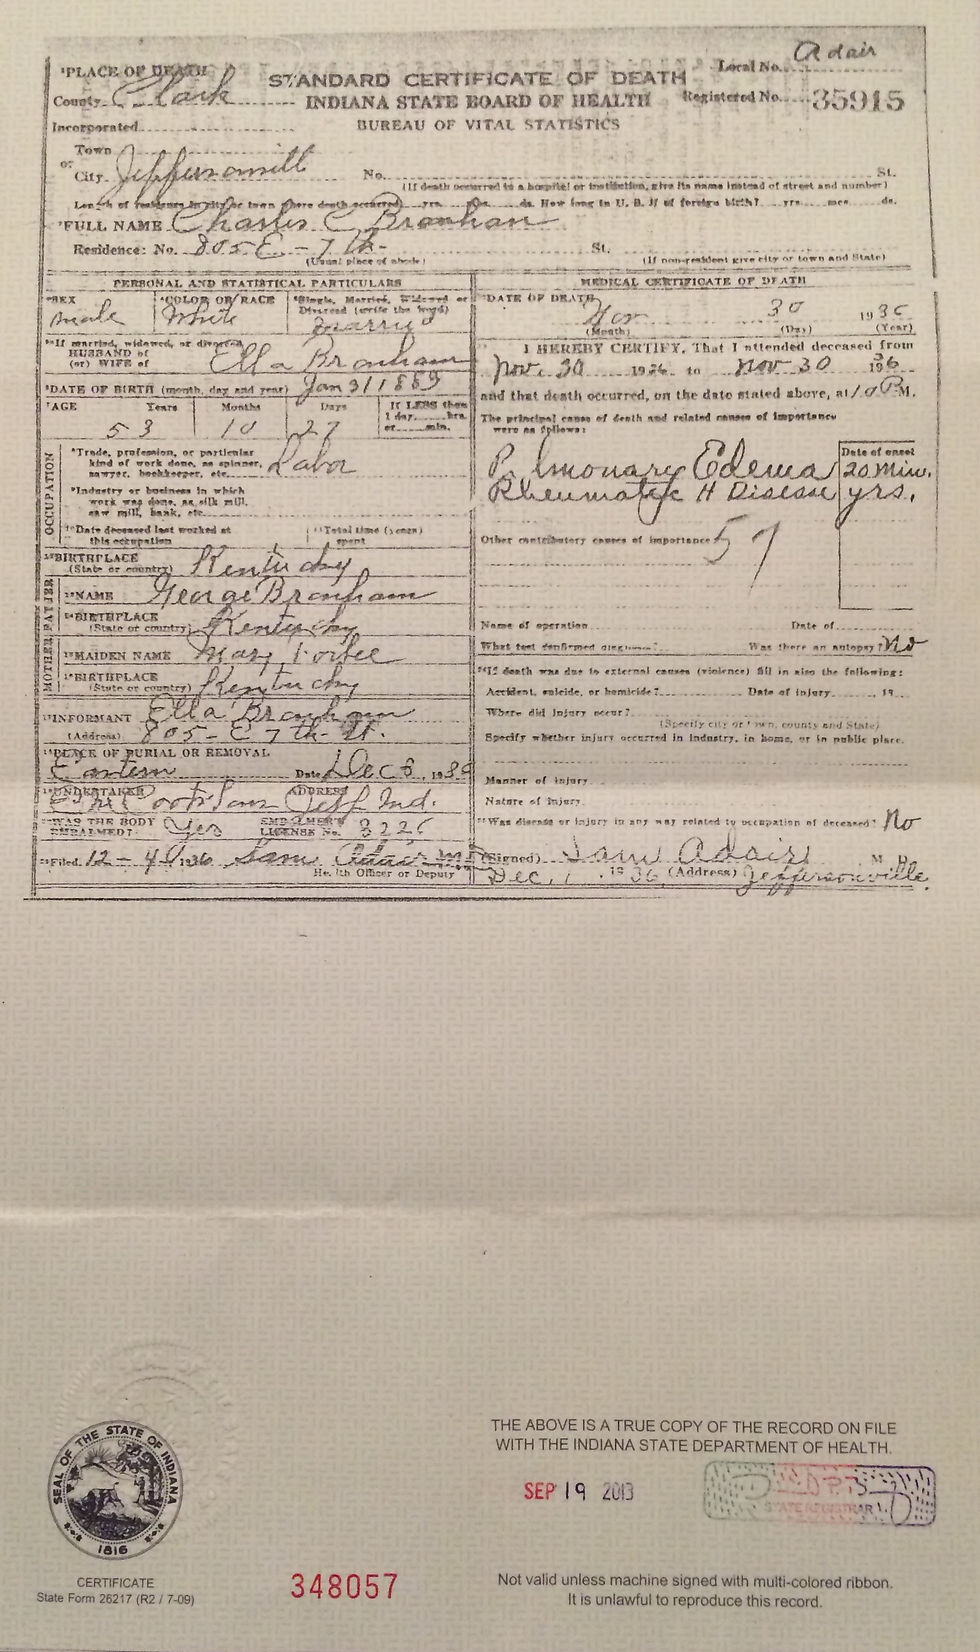 Adair
PLACE OF DEATH
STANDARD CERTIFICATE OF DEATH
Local No.
County Clark
INDIANA STATE BOARD OF HEALTH
Registered No. 35915
Incorporated
BUREAU OF VITAL STATISTICS
Town
or
City Jeffersonvill No. St.
(If death occurred in a hospital or institution, give its name instead of street and number)
Length of residence in city or town where death occurred yrs. mos. ds. How long in U. S. if of foreign birth? yrs. mos. ds.
FULL NAME Charles C Branham
Residence: No. 805 E - 7 th - St.
(Usual place of abode) (If non-resident give city or town and State)
PERSONAL AND STATISTICAL PARTICULARS
SEX male
COLOR OR RACE White
Single, Married, Widowed or Divorced (write the word)
If married, widowed, or divorced
HUSBAND of
(or) WIFE of Ella Branham
DATE OF BIRTH (month, day and year)
AGE Years Months Days If LESS than
1 day hrs.
or min.
53 10 27
OCCUPATION
Trade, profession, or particular
kind of work done, as spinner,
sawyer, bookkeeper, etc. Labor
Industry or business in which
work was done, as silk mill,
saw mill, bank, etc.
Date deceased last worked at
this occupation
Total time (years)
spent
BIRTHPLACE
(State or country) Kentucky
FATHER
NAME George Branham
BIRTHPLACE
(State or country) Kentucky
MOTHER
MAIDEN NAME Mary
BIRTHPLACE
(State or country) Kentucky
INFORMANT Ella Branham
(Address) 805 - E 7 th - St.
PLACE OF BURIAL OR REMOVAL
Eastern Date Dec 3, 193
UNDERTAKER ADDRESS
Coots Sons Jeff Ind.
WAS THE BODY
EMBALMED? Yes
EMBALMER'S
LICENSE No.
Filed 12 - 4 1936 Sam Adair
Health Officer or Deputy
MEDICAL CERTIFICATE OF DEATH
DATE OF DEATH
Nov 30 1936
(Month) (Day) (Year)
I HEREBY CERTIFY, That I attended deceased from
Nov. 30 1936 to Nov - 30 1936
and that death occurred, on the date stated above, at P M.
The principal cause of death and related causes of importance
were as follows:
Date of onset
Pulmonary Edema 20 Min.
Rheumatic H Disease yrs.
Other contributory causes of importance
57
Name of operation Date of
What test confirmed diagnosis? Was there an autopsy? No
If death was due to external causes (violence) fill in also the following:
Accident, suicide, or homicide? Date of injury 19
Where did injury occur?
(Specify city or town, county and State)
Specify whether injury occurred in industry, in home, or in public place.
Manner of injury
Nature of injury
Was disease or injury in any way related to occupation of deceased? No
(Signed) Sam Adair M. D.
Dec. 1 1936 (Address) Jeffersonville
THE ABOVE IS A TRUE COPY OF THE RECORD ON FILE
WITH THE INDIANA STATE DEPARTMENT OF HEALTH.
SEP 19 2013
STATE REGISTRAR
SEAL OF THE STATE OF INDIANA
1816
CERTIFICATE
State Form 26217 (R2 / 7-09)
348057
Not valid unless machine signed with multi-colored ribbon.
It is unlawful to reproduce this record.